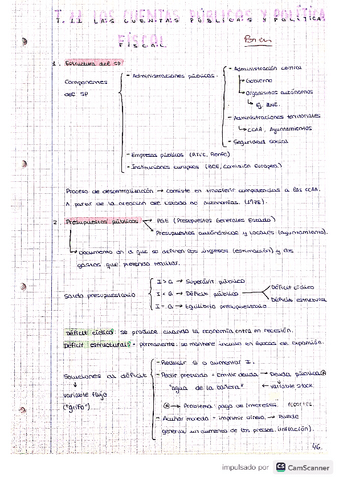 T. 11 LAS CUENTAS PÚBLICAS Y POLÍTICA
FISCAL
1. Estructura del SP
Componentes
del SP
- Administraciones públicas
- Administración central
Gobierno
Organismos autónomos
Ej. BNE.
- Administraciones territoriales
CCAA, Ayuntamientos
- Seguridad social
- Empresas públicas (RTVE, Renfe)
- Instituciones europeas (BCE, Comisión Europea)
Proceso de descentralización → consiste en transferir competencias a las CCAA.
A partir de la creación del estado de autonomías. (1978).
2. Presupuestos públicos
PGE (Presupuestos Generales Estado)
Presupuestos autonómicos y locales (ayuntamientos).
Documento en el que se definen los ingresos (estimación) y los
gastos que pretende realizar.
Saldo presupuestario
I > G → Superávit público
I < G → Déficit público
I = G → Equilibrio presupuestario
Déficit cíclico
Déficit estructural
Déficit cíclico: se produce cuando la economía entra en recesión.
Déficit estructural: permanente, se mantiene incluso en épocas de expansión.
Soluciones al déficit
variable flujo
("grifo")
- Reducir G o aumentar I.
- Pedir prestado - Emitir deuda → Deuda pública
"agua de la bañera" ← variable stock
→ Problema: pago de intereses
- Acuñar moneda - imprimir dinero → Puede
generar un aumento de los precios. (inflación).
46.
impulsado por CS CamScanner